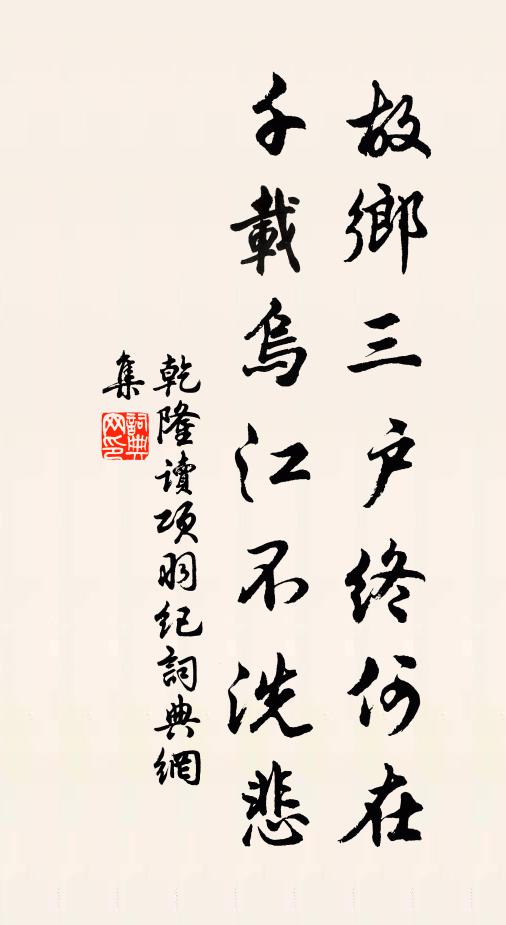 故鄉三户終何在
千載烏江不洗悲
乾隆讀項羽紀詞典網
集
詞典网印